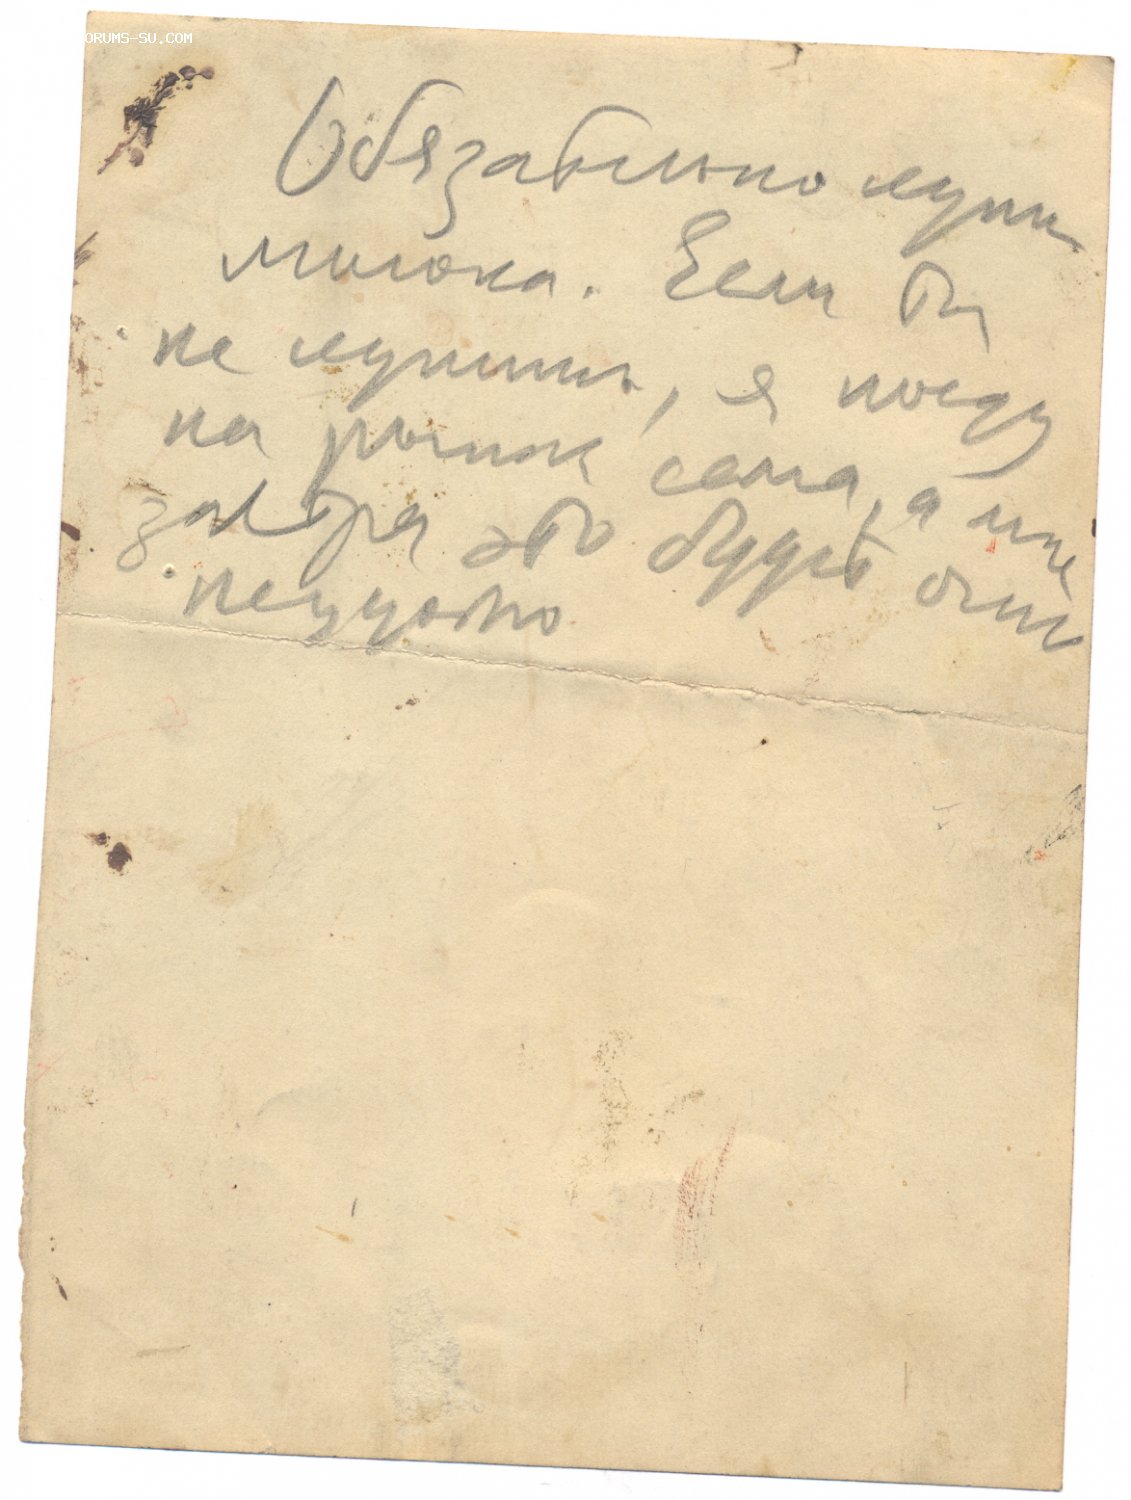 ORUMS-SU.COM
Обязательно купи
молока. Если ты
не купишь, я поеду
на рынок сама, а мне
завтра это будет очень
неудобно